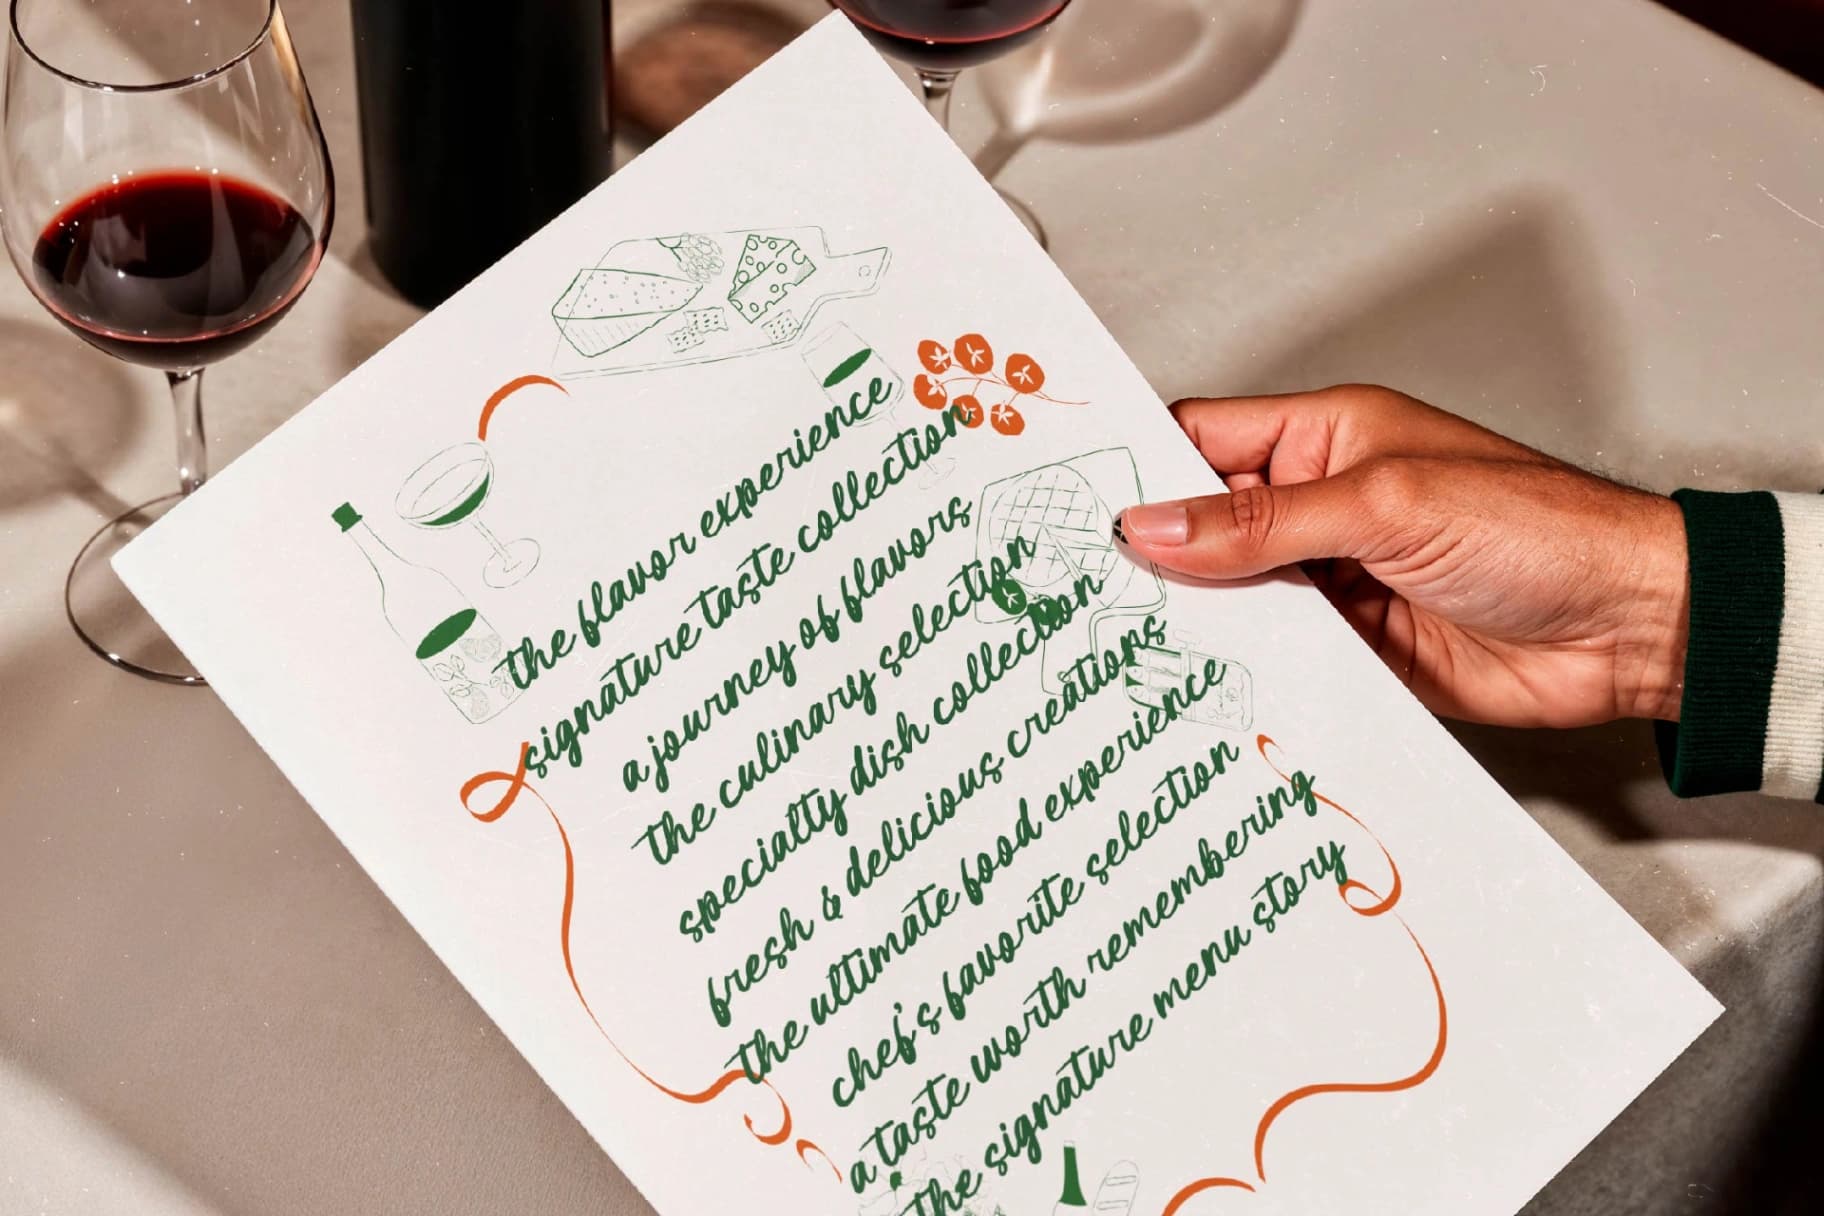 the flavor experience
signature taste collection
a journey of flavors
the culinary selection
specialty dish collection
fresh & delicious creations
the ultimate food experience
chef's favorite selection
a taste worth remembering
the signature menu story